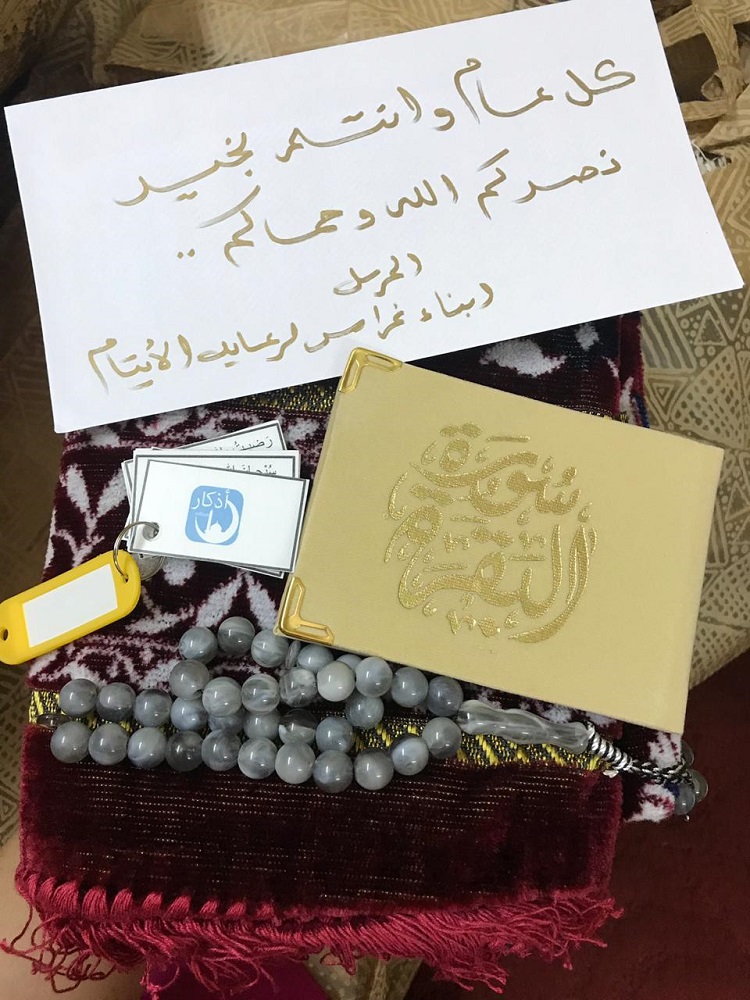 كل عام وانتم بخير
نصركم الله وحماكم ..
المرسل
ابناء غراس لرعاية الأيتام
أذكار
سورة
البقرة